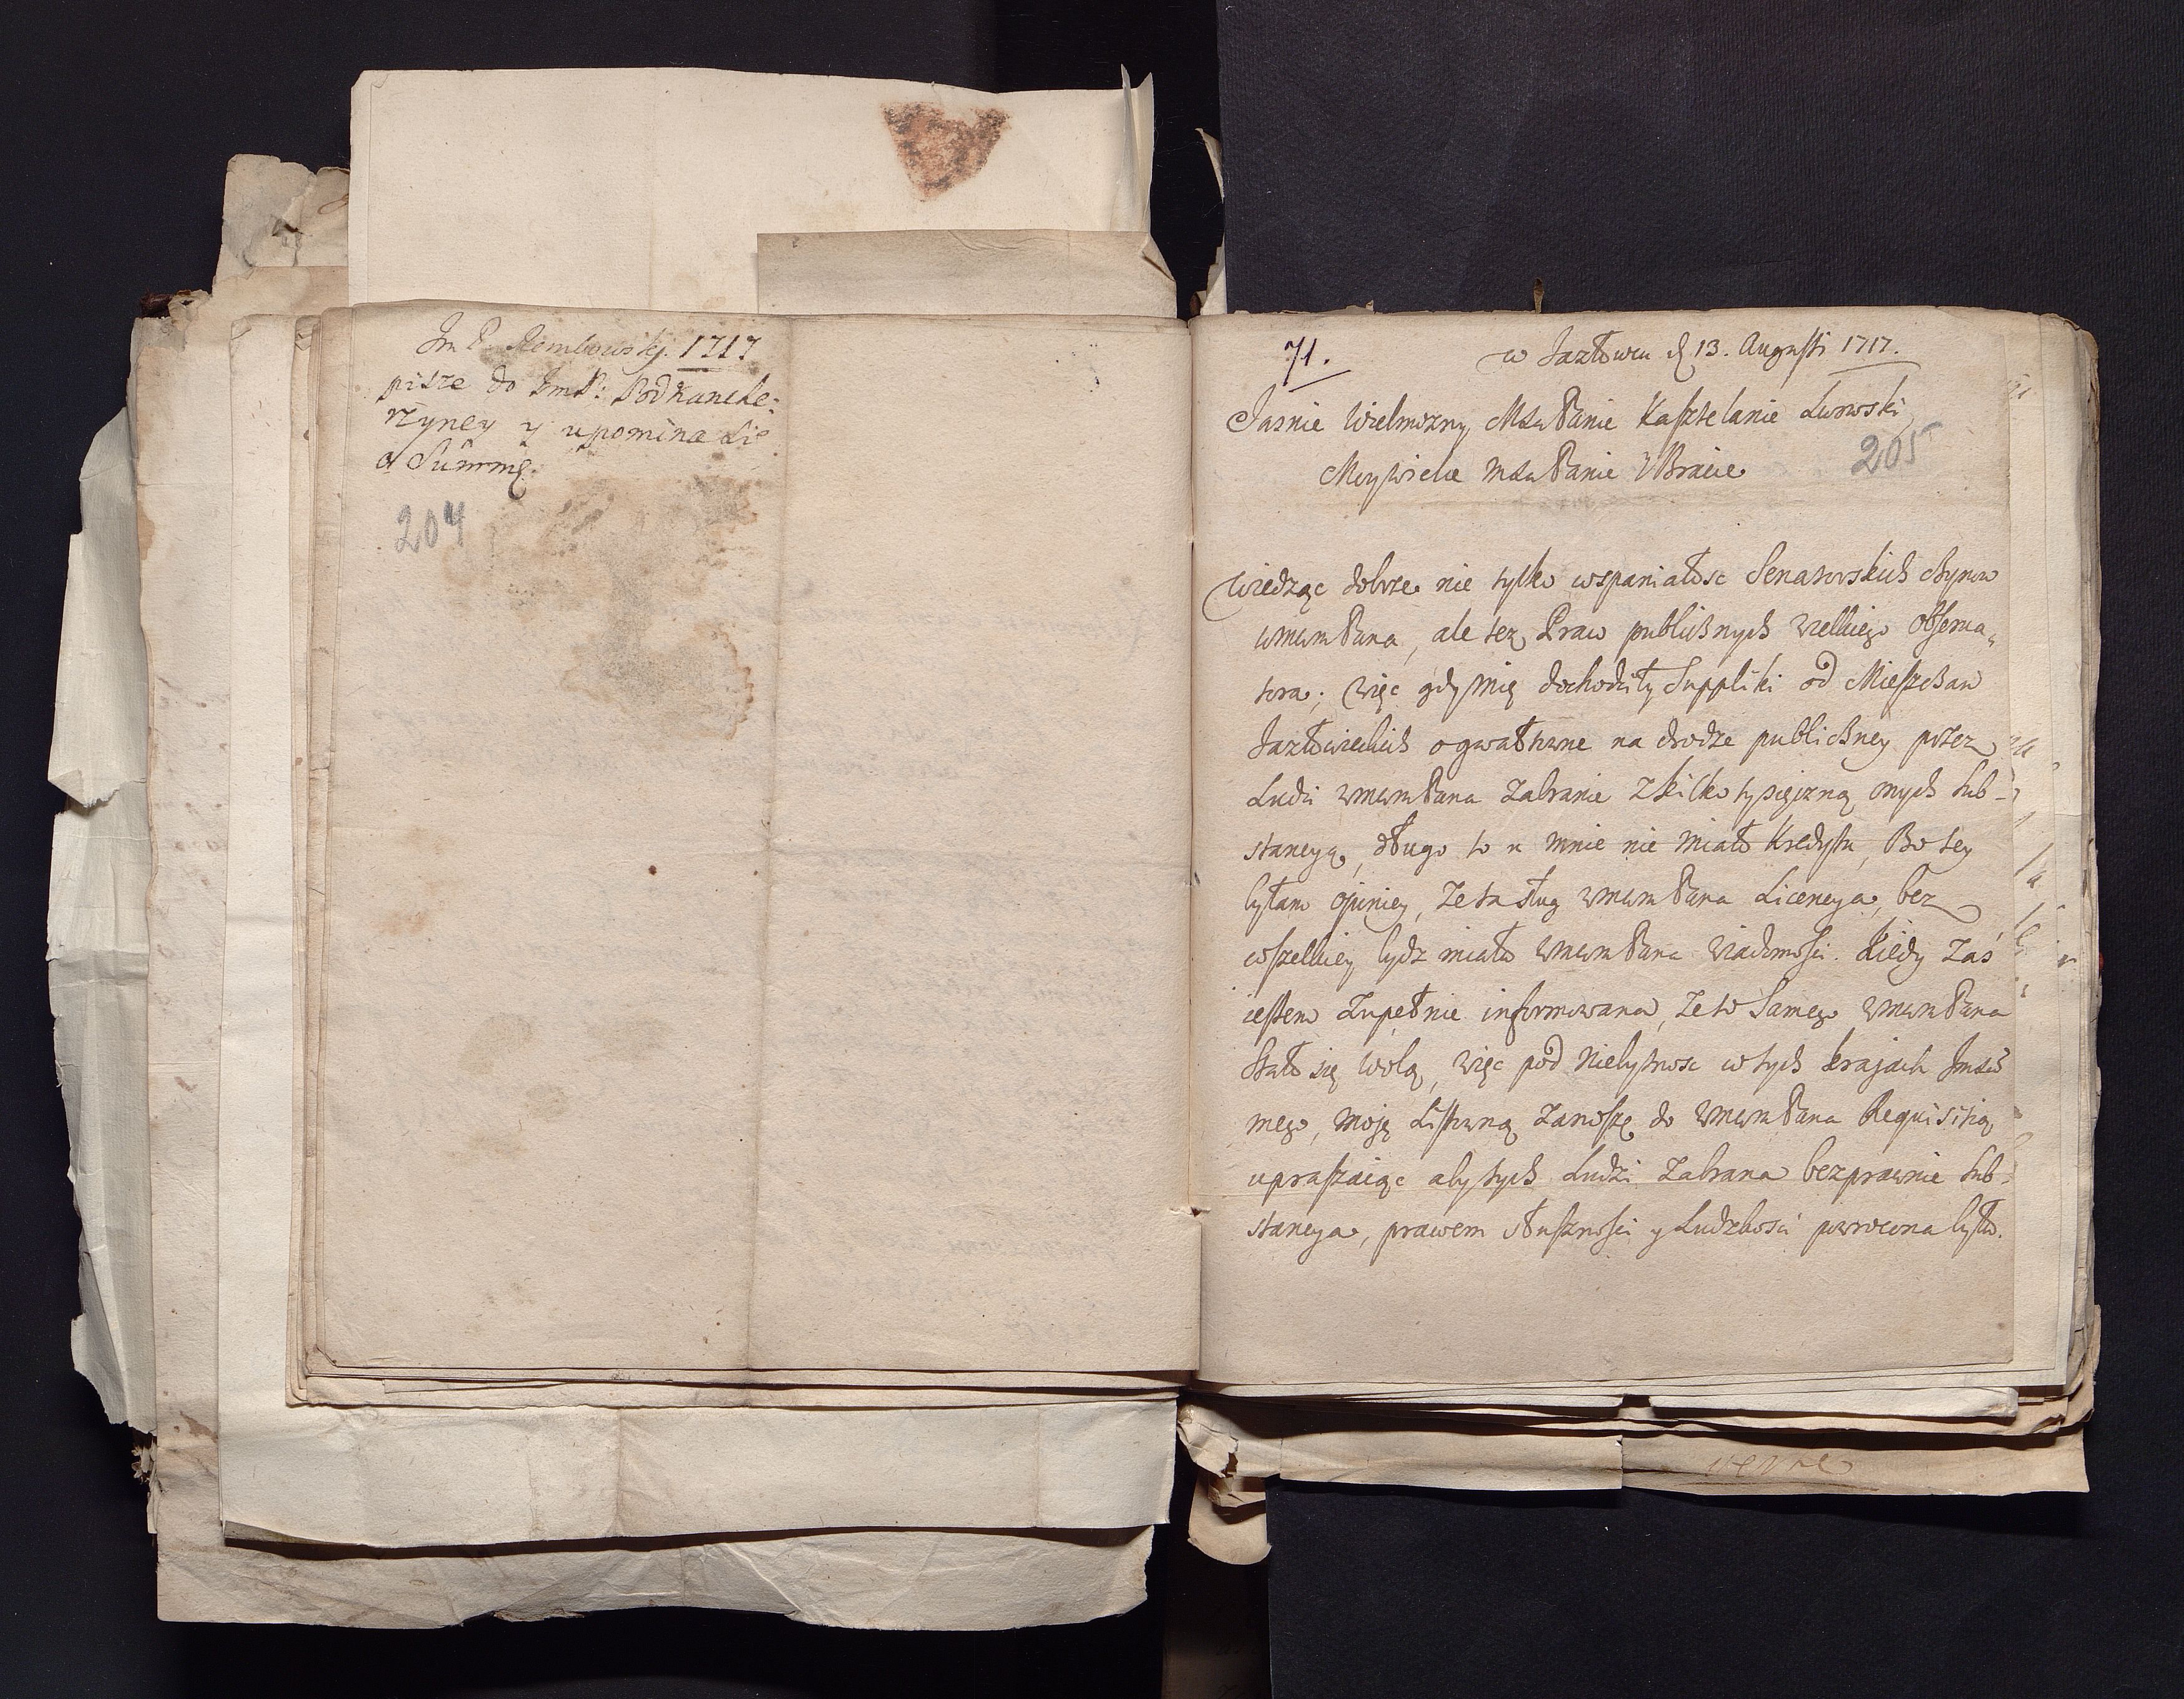 Im P. Rembowskj. 1717
pisze do ImP: Podkancle:
rzyney y upomina się
o Summę.
204
71.
w Jazłowcu d 13. Augusti 1717.
Jasnie Wielmozny MSCW Panie Kasztelanie Lwowski,
205
Moy wielce MSCW Panie y Bracie
Wiedząc dobrze nie tylko wspaniałosc Senatorskich Czynow
WMCWM Pana, ale tez Praw publicznych wielkiego obserwa-
tora; więc gdy mię dochodziły Suppliki od Mieszczan
Jazłowieckich o gwałtowne na drodze publiczney przez
Ludzi WMCWM Pana Zabranie z kilko tysięczną onych Sub-
stancyą, długo to u mnie nie miało Kredytu, Bo tey
byłam opiniey, Ze ta sług WMCWM Pana Licencya, bez
wszelkiey bydz miała WMCWM Pana Wiadomosci. Kiedy Zaś
iestem Zupełnie informowana, Ze to Samego WMCWM Pana
Stało się wolą, więc pod niebytnosc w tych krajach Jmsci
mego, moję Listowną Zanoszę do WMCWM Pana Requisitią
upraszaiąc aby tych Ludzi Zabrana bezprawnie Sub-
stancya, prawem słusznosci y Ludzkosci powrocona była.